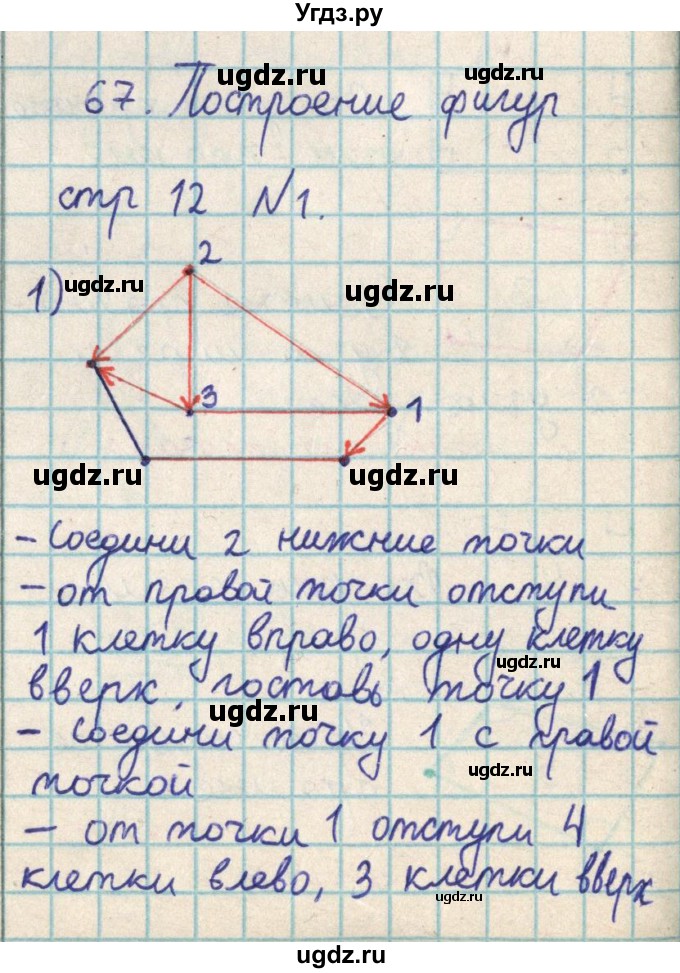 Угдз.ру
ugdz.ru ugdz.ru
67. Построение фигур
стр 12 №1.
2
1) ugdz.ru
ugdz.ru
3 1
ugdz.ru ugdz.ru
- Соедини 2 нижние точки
- от правой точки отступи
1 клетку вправо, одну клетку
ugdz.ru
вверх, поставь точку 1
ugdz.ru
- Соедини точку 1 с правой
ugdz.ru
точкой
- от точки 1 отступи 4
клетки влево, 3 клетки вверх
ugdz.ru
ugdz.ru